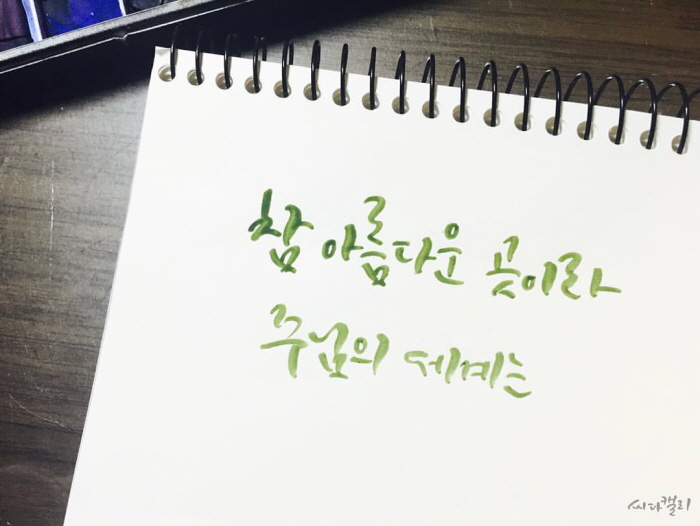 참 아름다운 곳이라
주님의 세계는
씨다캘리